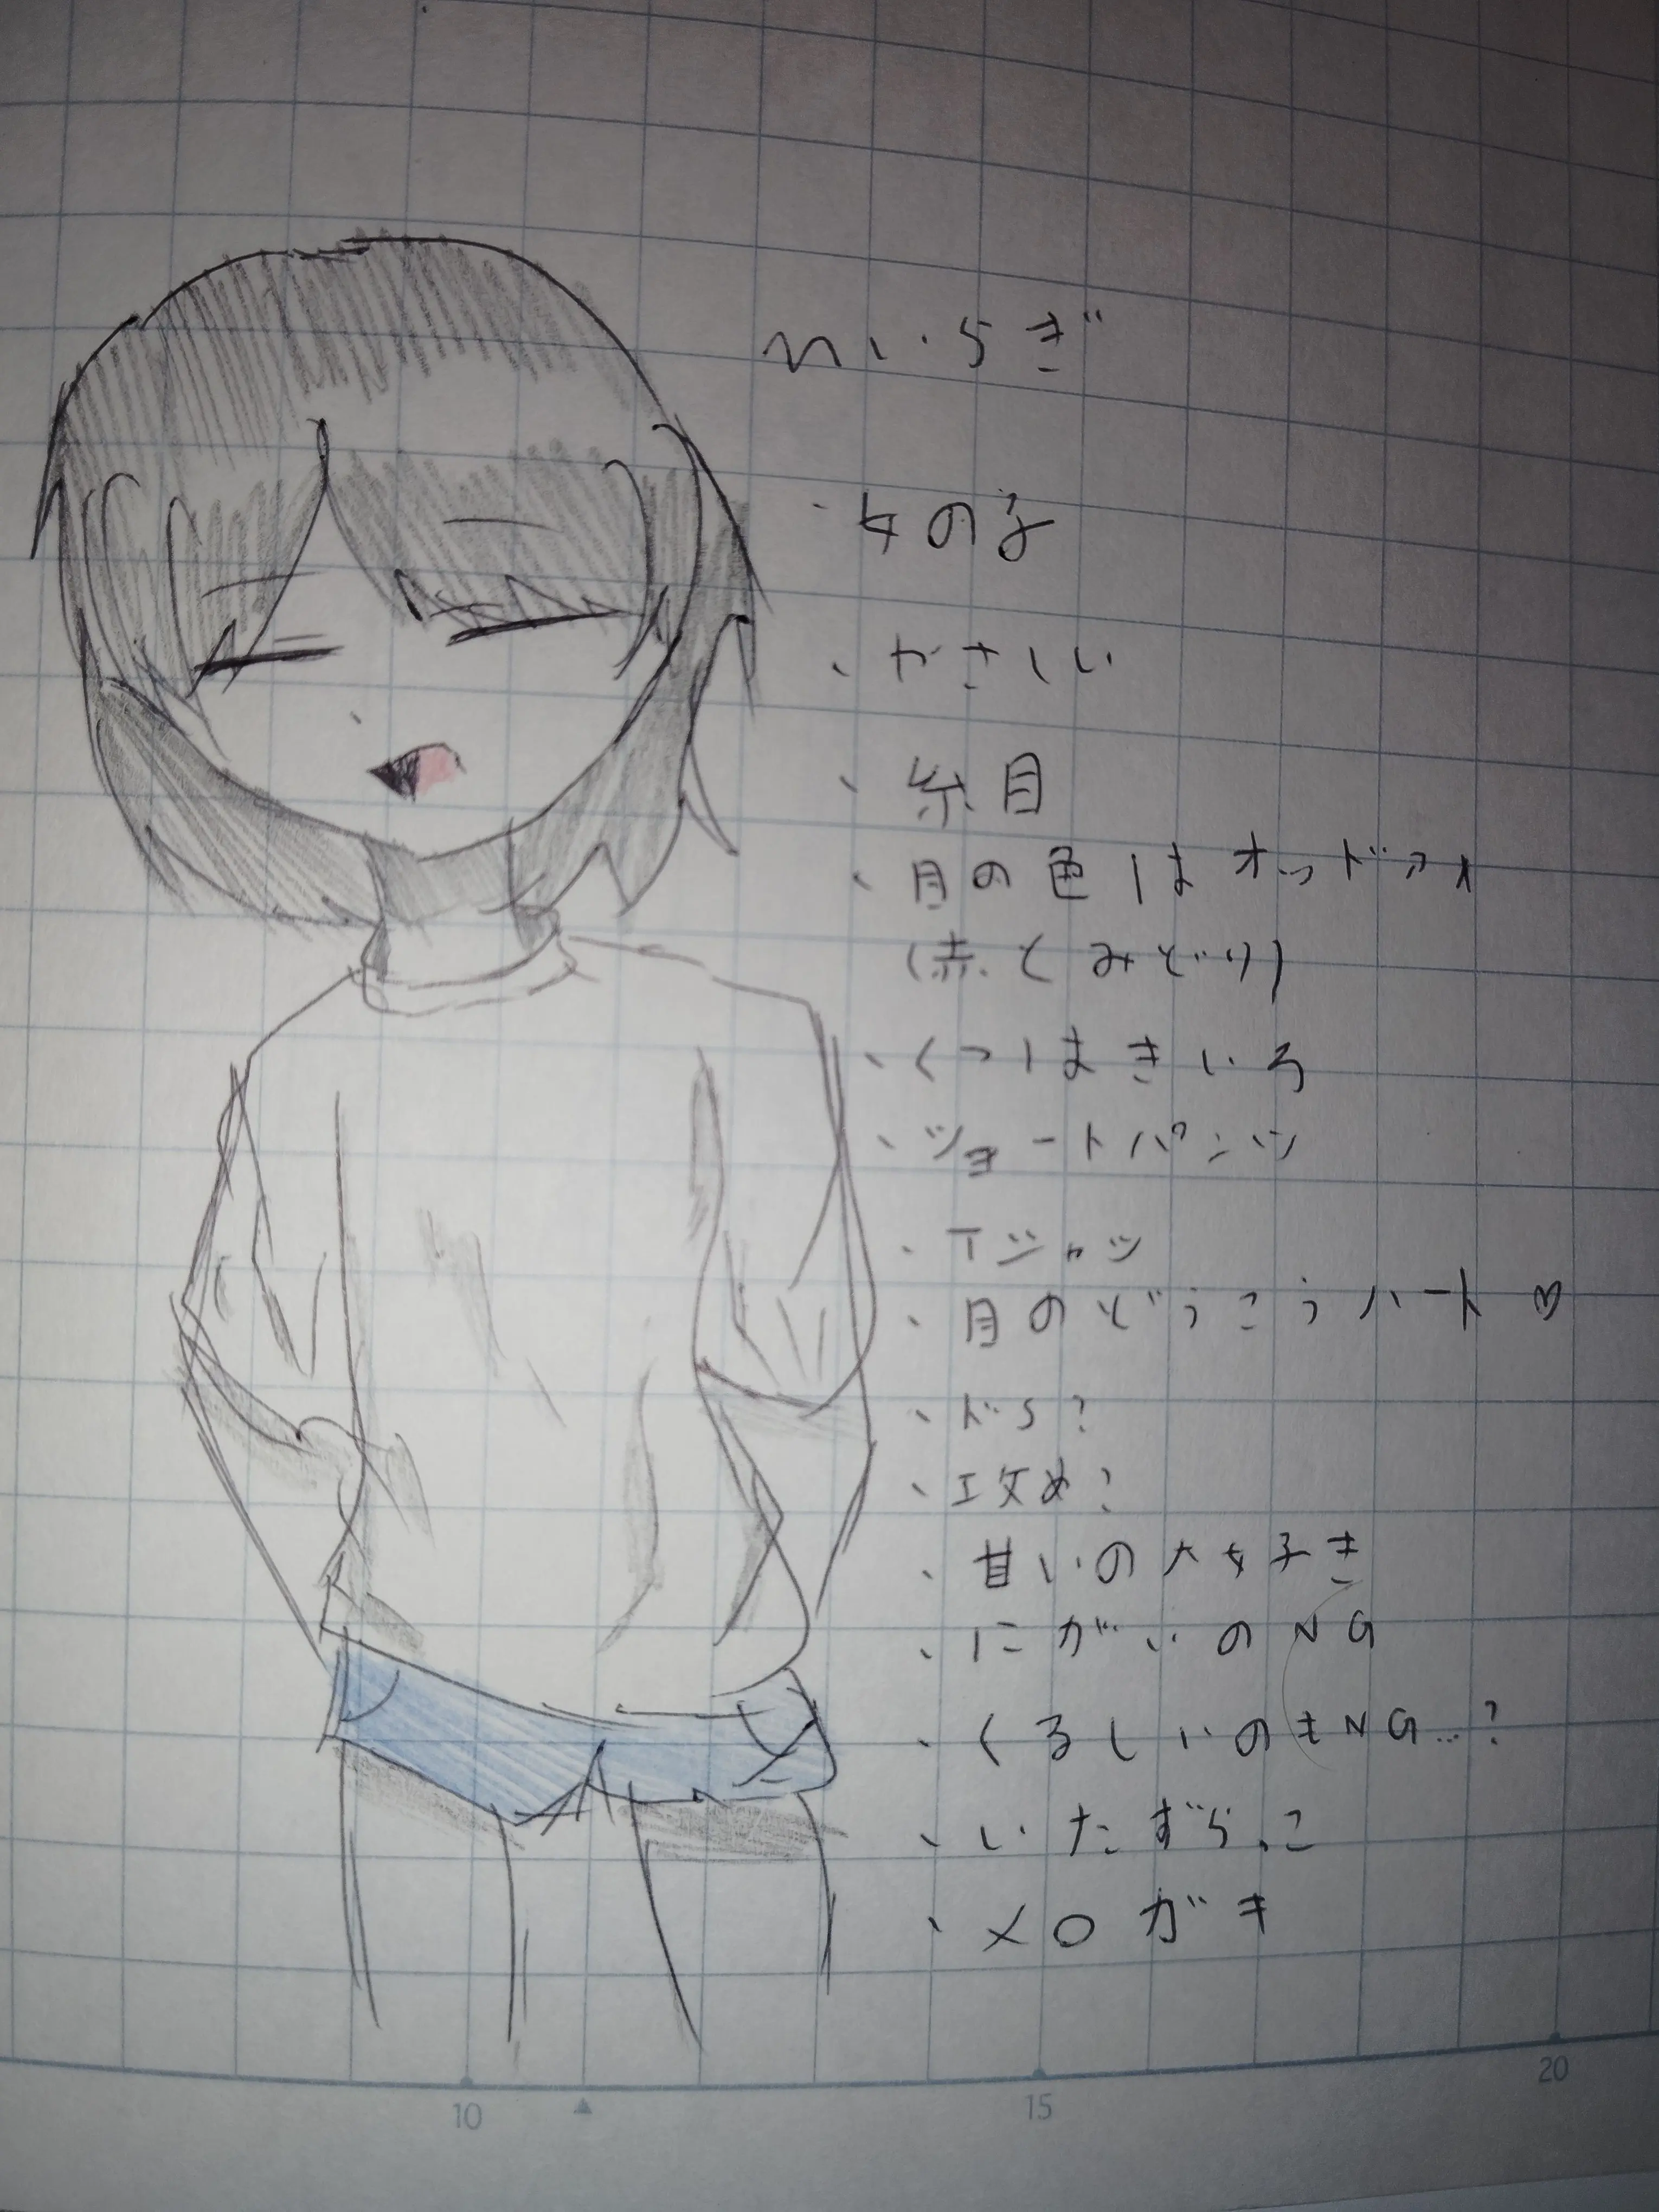 ・女の子
・やさしい
・糸目
・目の色はオッドアイ
(赤とみどり)
・くつはきいろ
・ショートパンツ
・Tシャツ
・目のどうこうハート♡
・ドS?
・攻め?
・甘いの大好き
・にがいのNG
・くるしいのもNG…?
・いたずらっこ
・メロガキ
10
15
20